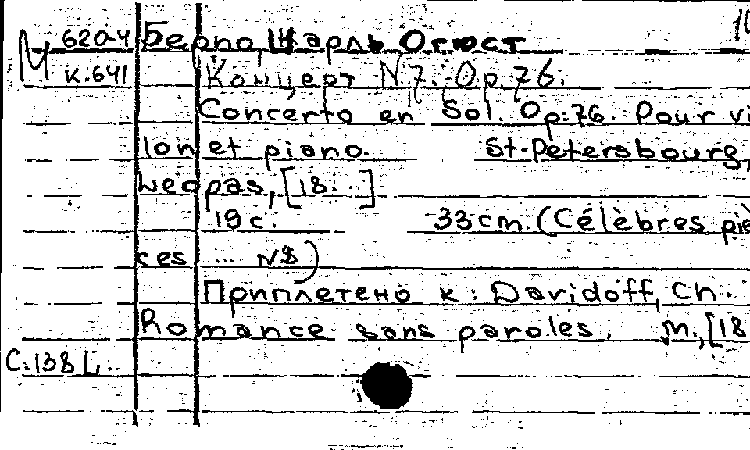 М 620-4 Берио, Шарль Огюст
к.641 Концерт N7. Op.76.
Concerto en Sol. Op:76. Pour vi
lon et piano. St-Petersbourg,
[18..]
19 с. 33 cm. (Célèbres piè
ces ... N8)
Приплетено к: Davidoff, Ch.
Romance sans paroles. M., [18
C:138 L.